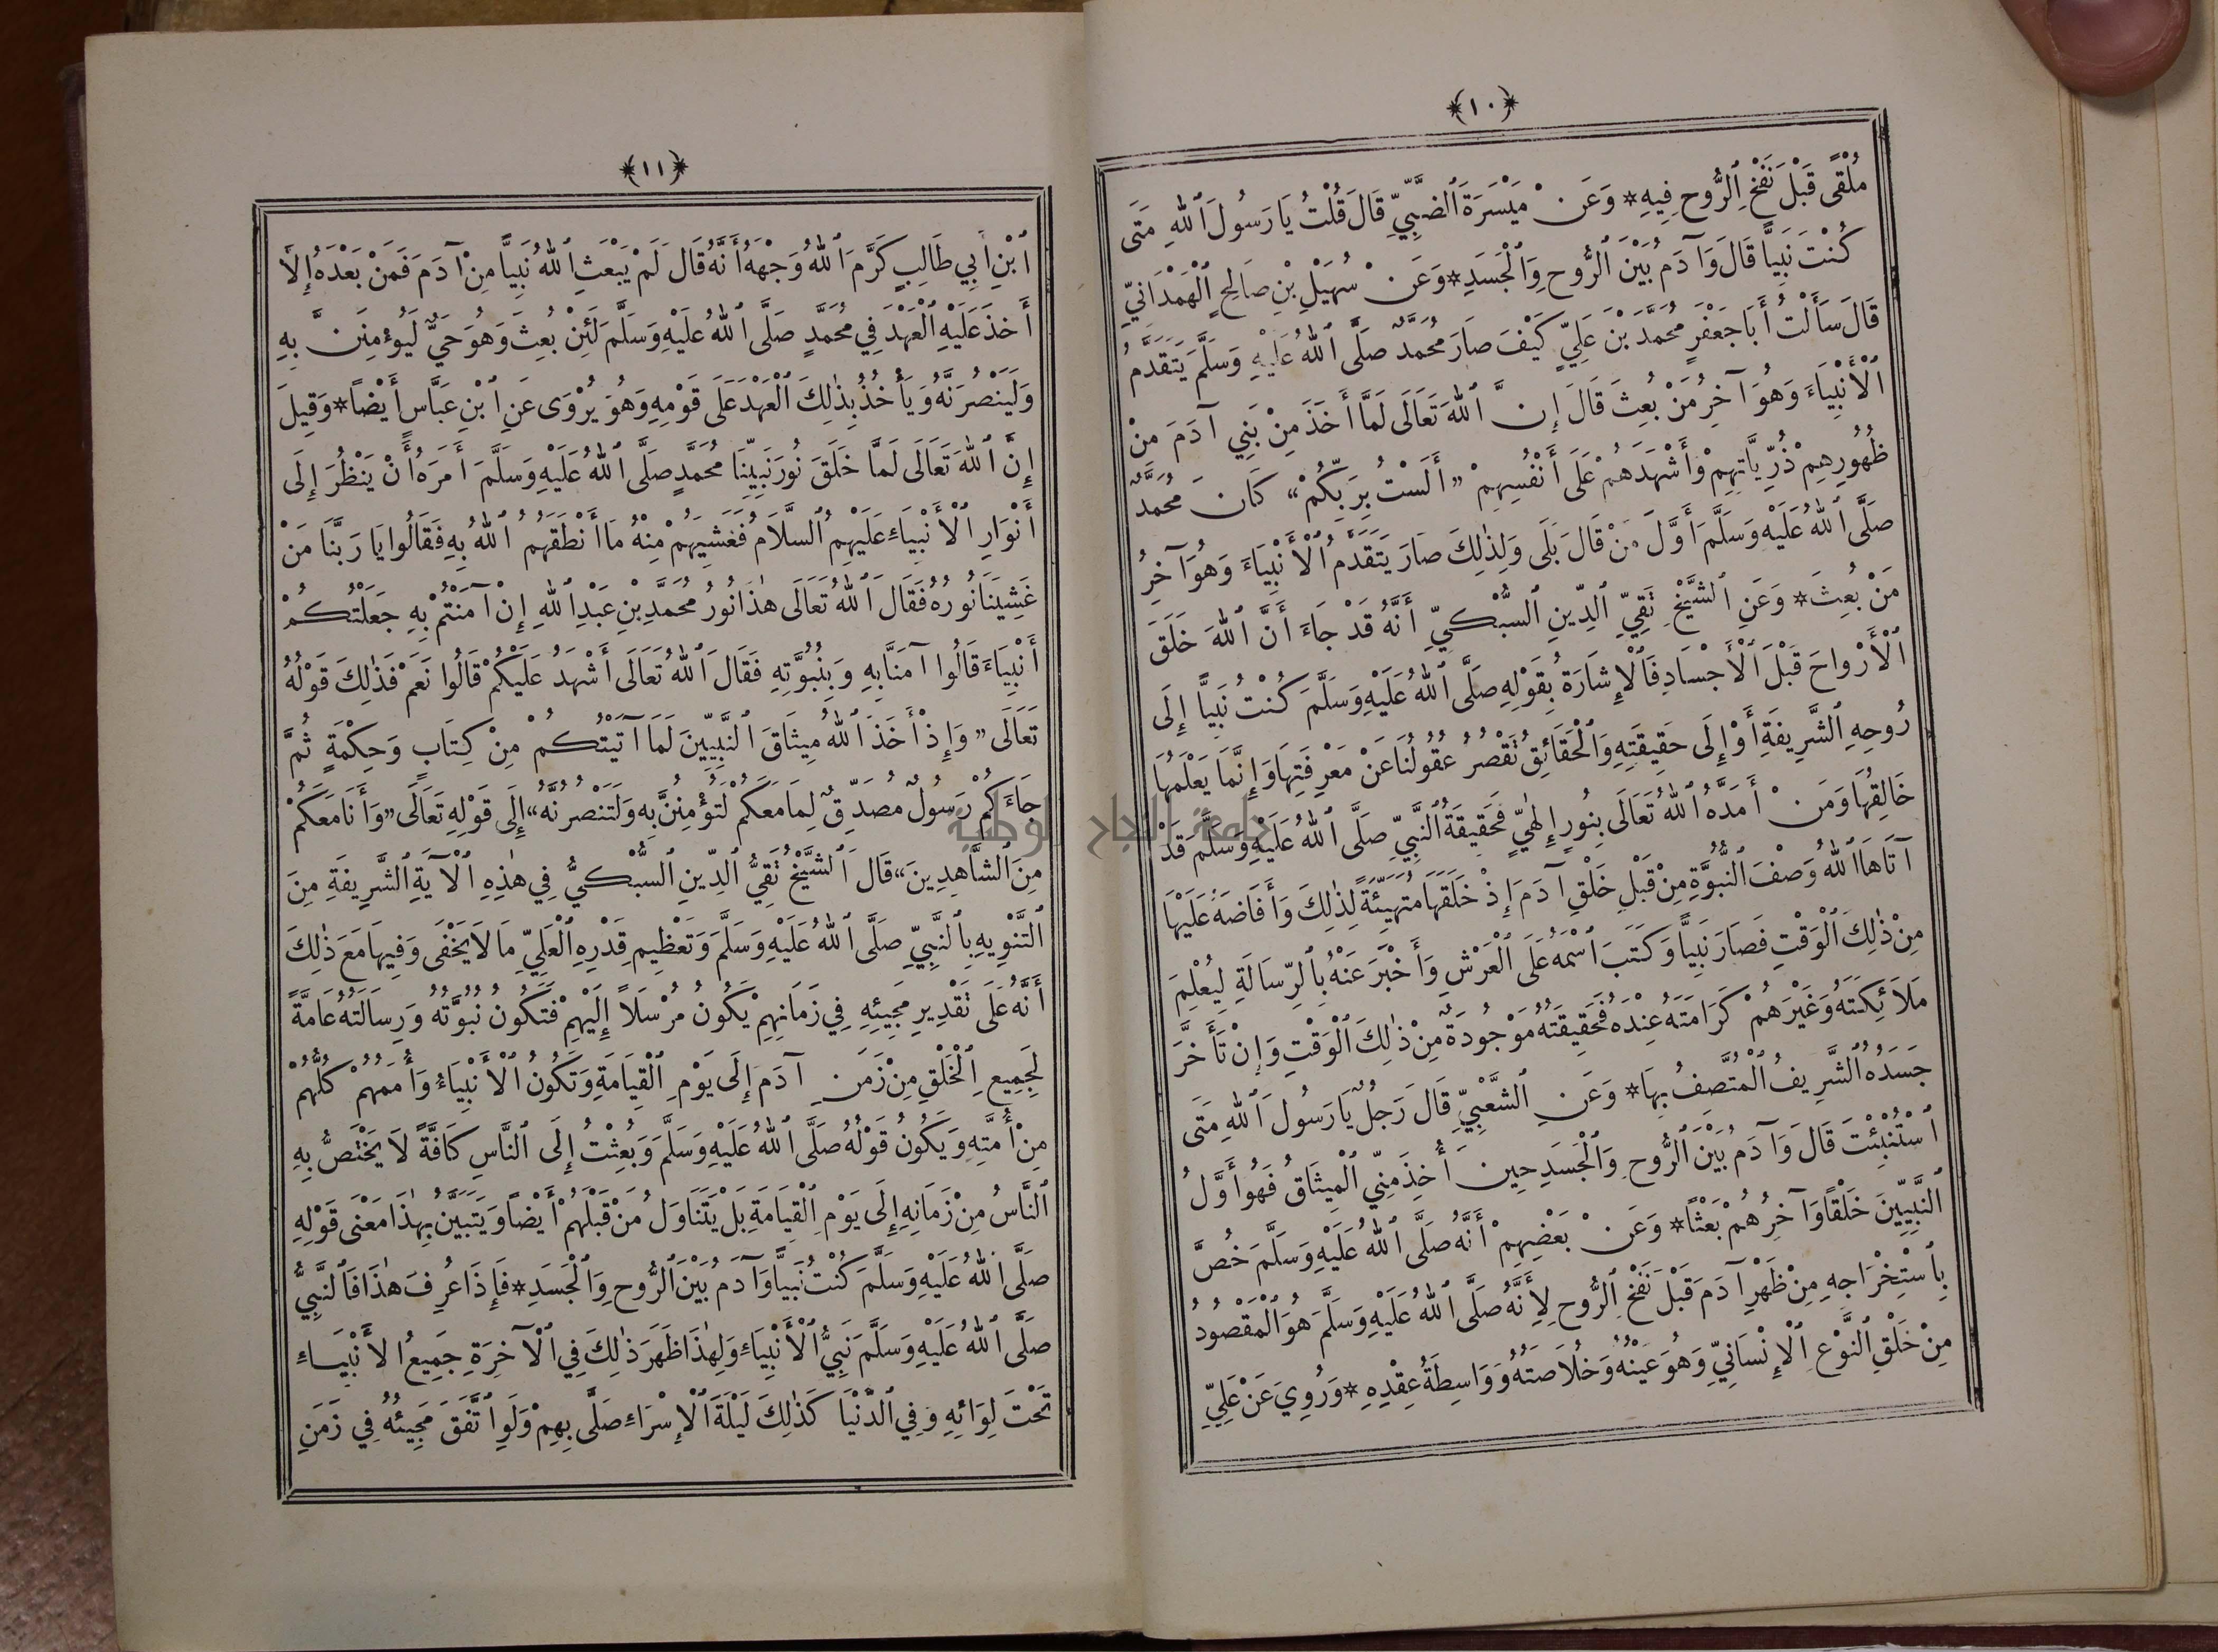 ﴿١٠﴾
مُلْقًى قَبْلَ نَفْخِ ٱلرُّوحِ فِيهِ * وَعَنْ مَيْسَرَةَ ٱلضَّبِّيِّ قَالَ قُلْتُ يَا رَسُولَ ٱللهِ مَتَى
كُنْتَ نَبِيًّا قَالَ وَآدَمُ بَيْنَ ٱلرُّوحِ وَٱلْجَسَدِ * وَعَنْ سُهَيْلِ بْنِ صَالِحٍ ٱلْهَمْدَانِيِّ
قَالَ سَأَلْتُ أَبَا جَعْفَرٍ مُحَمَّدَ بْنَ عَلِيٍّ كَيْفَ صَارَ مُحَمَّدٌ صَلَّى ٱللهُ عَلَيْهِ وَسَلَّمَ يَتَقَدَّمُ
ٱلْأَنْبِيَاءَ وَهُوَ آخِرُ مَنْ بُعِثَ قَالَ إِنَّ ٱللهَ تَعَالَى لَمَّا أَخَذَ مِنْ بَنِي آدَمَ مِنْ
ظُهُورِهِمْ ذُرِّيَّاتِهِمْ وَأَشْهَدَهُمْ عَلَى أَنْفُسِهِمْ «أَلَسْتُ بِرَبِّكُمْ» كَانَ مُحَمَّدٌ
صَلَّى ٱللهُ عَلَيْهِ وَسَلَّمَ أَوَّلَ مَنْ قَالَ بَلَى وَلِذٰلِكَ صَارَ يَتَقَدَّمُ ٱلْأَنْبِيَاءَ وَهُوَ آخِرُ
مَنْ بُعِثَ * وَعَنِ ٱلشَّيْخِ تَقِيِّ ٱلدِّينِ ٱلسُّبْكِيِّ أَنَّهُ قَدْ جَاءَ أَنَّ ٱللهَ خَلَقَ
ٱلْأَرْوَاحَ قَبْلَ ٱلْأَجْسَادِ فَٱلْإِشَارَةُ بِقَوْلِهِ صَلَّى ٱللهُ عَلَيْهِ وَسَلَّمَ كُنْتُ نَبِيًّا إِلَى
رُوحِهِ ٱلشَّرِيفَةِ أَوْ إِلَى حَقِيقَتِهِ وَٱلْحَقَائِقُ تَقْصُرُ عُقُولُنَا عَنْ مَعْرِفَتِهَا وَإِنَّمَا يَعْلَمُهَا
خَالِقُهَا وَمَنْ أَمَدَّهُ ٱللهُ تَعَالَى بِنُورٍ إِلٰهِيٍّ فَحَقِيقَةُ ٱلنَّبِيِّ صَلَّى ٱللهُ عَلَيْهِ وَسَلَّمَ قَدْ
آتَاهَا ٱللهُ وَصْفَ ٱلنُّبُوَّةِ مِنْ قَبْلِ خَلْقِ آدَمَ إِذْ خَلَقَهَا مُتَهَيِّئَةً لِذٰلِكَ وَأَفَاضَهُ عَلَيْهَا
مِنْ ذٰلِكَ ٱلْوَقْتِ فَصَارَ نَبِيًّا وَكَتَبَ ٱسْمَهُ عَلَى ٱلْعَرْشِ وَأَخْبَرَ عَنْهُ بِٱلرِّسَالَةِ لِيُعْلِمَ
مَلَائِكَتَهُ وَغَيْرَهُمْ كَرَامَتَهُ عِنْدَهُ فَحَقِيقَتُهُ مَوْجُودَةٌ مِنْ ذٰلِكَ ٱلْوَقْتِ وَإِنْ تَأَخَّرَ
جَسَدُهُ ٱلشَّرِيفُ ٱلْمُتَّصِفُ بِهَا * وَعَنِ ٱلشَّعْبِيِّ قَالَ رَجُلٌ يَا رَسُولَ ٱللهِ مَتَى
ٱسْتُنْبِئْتَ قَالَ وَآدَمُ بَيْنَ ٱلرُّوحِ وَٱلْجَسَدِ حِينَ أُخِذَ مِنِّي ٱلْمِيثَاقُ فَهُوَ أَوَّلُ
ٱلنَّبِيِّينَ خَلْقًا وَآخِرُهُمْ بَعْثًا * وَعَنْ بَعْضِهِمْ أَنَّهُ صَلَّى ٱللهُ عَلَيْهِ وَسَلَّمَ خُصَّ
بِٱسْتِخْرَاجِهِ مِنْ ظَهْرِ آدَمَ قَبْلَ نَفْخِ ٱلرُّوحِ لِأَنَّهُ صَلَّى ٱللهُ عَلَيْهِ وَسَلَّمَ هُوَ ٱلْمَقْصُودُ
مِنْ خَلْقِ ٱلنَّوْعِ ٱلْإِنْسَانِيِّ وَهُوَ عَيْنُهُ وَخُلَاصَتُهُ وَوَاسِطَةُ عِقْدِهِ * وَرُوِيَ عَنْ عَلِيِّ
﴿١١﴾
ٱبْنِ أَبِي طَالِبٍ كَرَّمَ ٱللهُ وَجْهَهُ أَنَّهُ قَالَ لَمْ يَبْعَثِ ٱللهُ نَبِيًّا مِنْ آدَمَ فَمَنْ بَعْدَهُ إِلَّا
أَخَذَ عَلَيْهِ ٱلْعَهْدَ فِي مُحَمَّدٍ صَلَّى ٱللهُ عَلَيْهِ وَسَلَّمَ لَئِنْ بُعِثَ وَهُوَ حَيٌّ لَيُؤْمِنَنَّ بِهِ
وَلَيَنْصُرَنَّهُ وَيَأْخُذُ بِذٰلِكَ ٱلْعَهْدَ عَلَى قَوْمِهِ وَهُوَ يُرْوَى عَنِ ٱبْنِ عَبَّاسٍ أَيْضًا * وَقِيلَ
إِنَّ ٱللهَ تَعَالَى لَمَّا خَلَقَ نُورَ نَبِيِّنَا مُحَمَّدٍ صَلَّى ٱللهُ عَلَيْهِ وَسَلَّمَ أَمَرَهُ أَنْ يَنْظُرَ إِلَى
أَنْوَارِ ٱلْأَنْبِيَاءِ عَلَيْهِمُ ٱلسَّلَامُ فَغَشِيَهُمْ مِنْهُ مَا أَنْطَقَهُمُ ٱللهُ بِهِ فَقَالُوا يَا رَبَّنَا مَنْ
غَشِيَنَا نُورُهُ فَقَالَ ٱللهُ تَعَالَى هٰذَا نُورُ مُحَمَّدِ بْنِ عَبْدِ ٱللهِ إِنْ آمَنْتُمْ بِهِ جَعَلْتُكُمْ
أَنْبِيَاءَ قَالُوا آمَنَّا بِهِ وَبِنُبُوَّتِهِ فَقَالَ ٱللهُ تَعَالَى أَشْهَدُ عَلَيْكُمْ قَالُوا نَعَمْ فَذٰلِكَ قَوْلُهُ
تَعَالَى «وَإِذْ أَخَذَ ٱللهُ مِيثَاقَ ٱلنَّبِيِّينَ لَمَا آتَيْتُكُمْ مِنْ كِتَابٍ وَحِكْمَةٍ ثُمَّ
جَاءَكُمْ رَسُولٌ مُصَدِّقٌ لِمَا مَعَكُمْ لَتُؤْمِنُنَّ بِهِ وَلَتَنْصُرُنَّهُ» إِلَى قَوْلِهِ تَعَالَى «وَأَنَا مَعَكُمْ
مِنَ ٱلشَّاهِدِينَ» قَالَ ٱلشَّيْخُ تَقِيُّ ٱلدِّينِ ٱلسُّبْكِيُّ فِي هٰذِهِ ٱلْآيَةِ ٱلشَّرِيفَةِ مِنَ
ٱلتَّنْوِيهِ بِٱلنَّبِيِّ صَلَّى ٱللهُ عَلَيْهِ وَسَلَّمَ وَتَعْظِيمِ قَدْرِهِ ٱلْعَلِيِّ مَا لَا يَخْفَى وَفِيهَا مَعَ ذٰلِكَ
أَنَّهُ عَلَى تَقْدِيرِ مَجِيئِهِ فِي زَمَانِهِمْ يَكُونُ مُرْسَلًا إِلَيْهِمْ فَتَكُونُ نُبُوَّتُهُ وَرِسَالَتُهُ عَامَّةً
لِجَمِيعِ ٱلْخَلْقِ مِنْ زَمَنِ آدَمَ إِلَى يَوْمِ ٱلْقِيَامَةِ وَتَكُونُ ٱلْأَنْبِيَاءُ وَأُمَمُهُمْ كُلُّهُمْ
مِنْ أُمَّتِهِ وَيَكُونُ قَوْلُهُ صَلَّى ٱللهُ عَلَيْهِ وَسَلَّمَ وَبُعِثْتُ إِلَى ٱلنَّاسِ كَافَّةً لَا يَخْتَصُّ بِهِ
ٱلنَّاسُ مِنْ زَمَانِهِ إِلَى يَوْمِ ٱلْقِيَامَةِ بَلْ يَتَنَاوَلُ مَنْ قَبْلَهُمْ أَيْضًا وَيَتَبَيَّنُ بِهٰذَا مَعْنَى قَوْلِهِ
صَلَّى ٱللهُ عَلَيْهِ وَسَلَّمَ كُنْتُ نَبِيًّا وَآدَمُ بَيْنَ ٱلرُّوحِ وَٱلْجَسَدِ * فَإِذَا عُرِفَ هٰذَا فَٱلنَّبِيُّ
صَلَّى ٱللهُ عَلَيْهِ وَسَلَّمَ نَبِيُّ ٱلْأَنْبِيَاءِ وَلِهٰذَا ظَهَرَ ذٰلِكَ فِي ٱلْآخِرَةِ جَمِيعُ ٱلْأَنْبِيَاءِ
تَحْتَ لِوَائِهِ وَفِي ٱلدُّنْيَا كَذٰلِكَ لَيْلَةَ ٱلْإِسْرَاءِ صَلَّى بِهِمْ وَلَوِ ٱتَّفَقَ مَجِيئُهُ فِي زَمَنِ
جامعة النجاح الوطنية